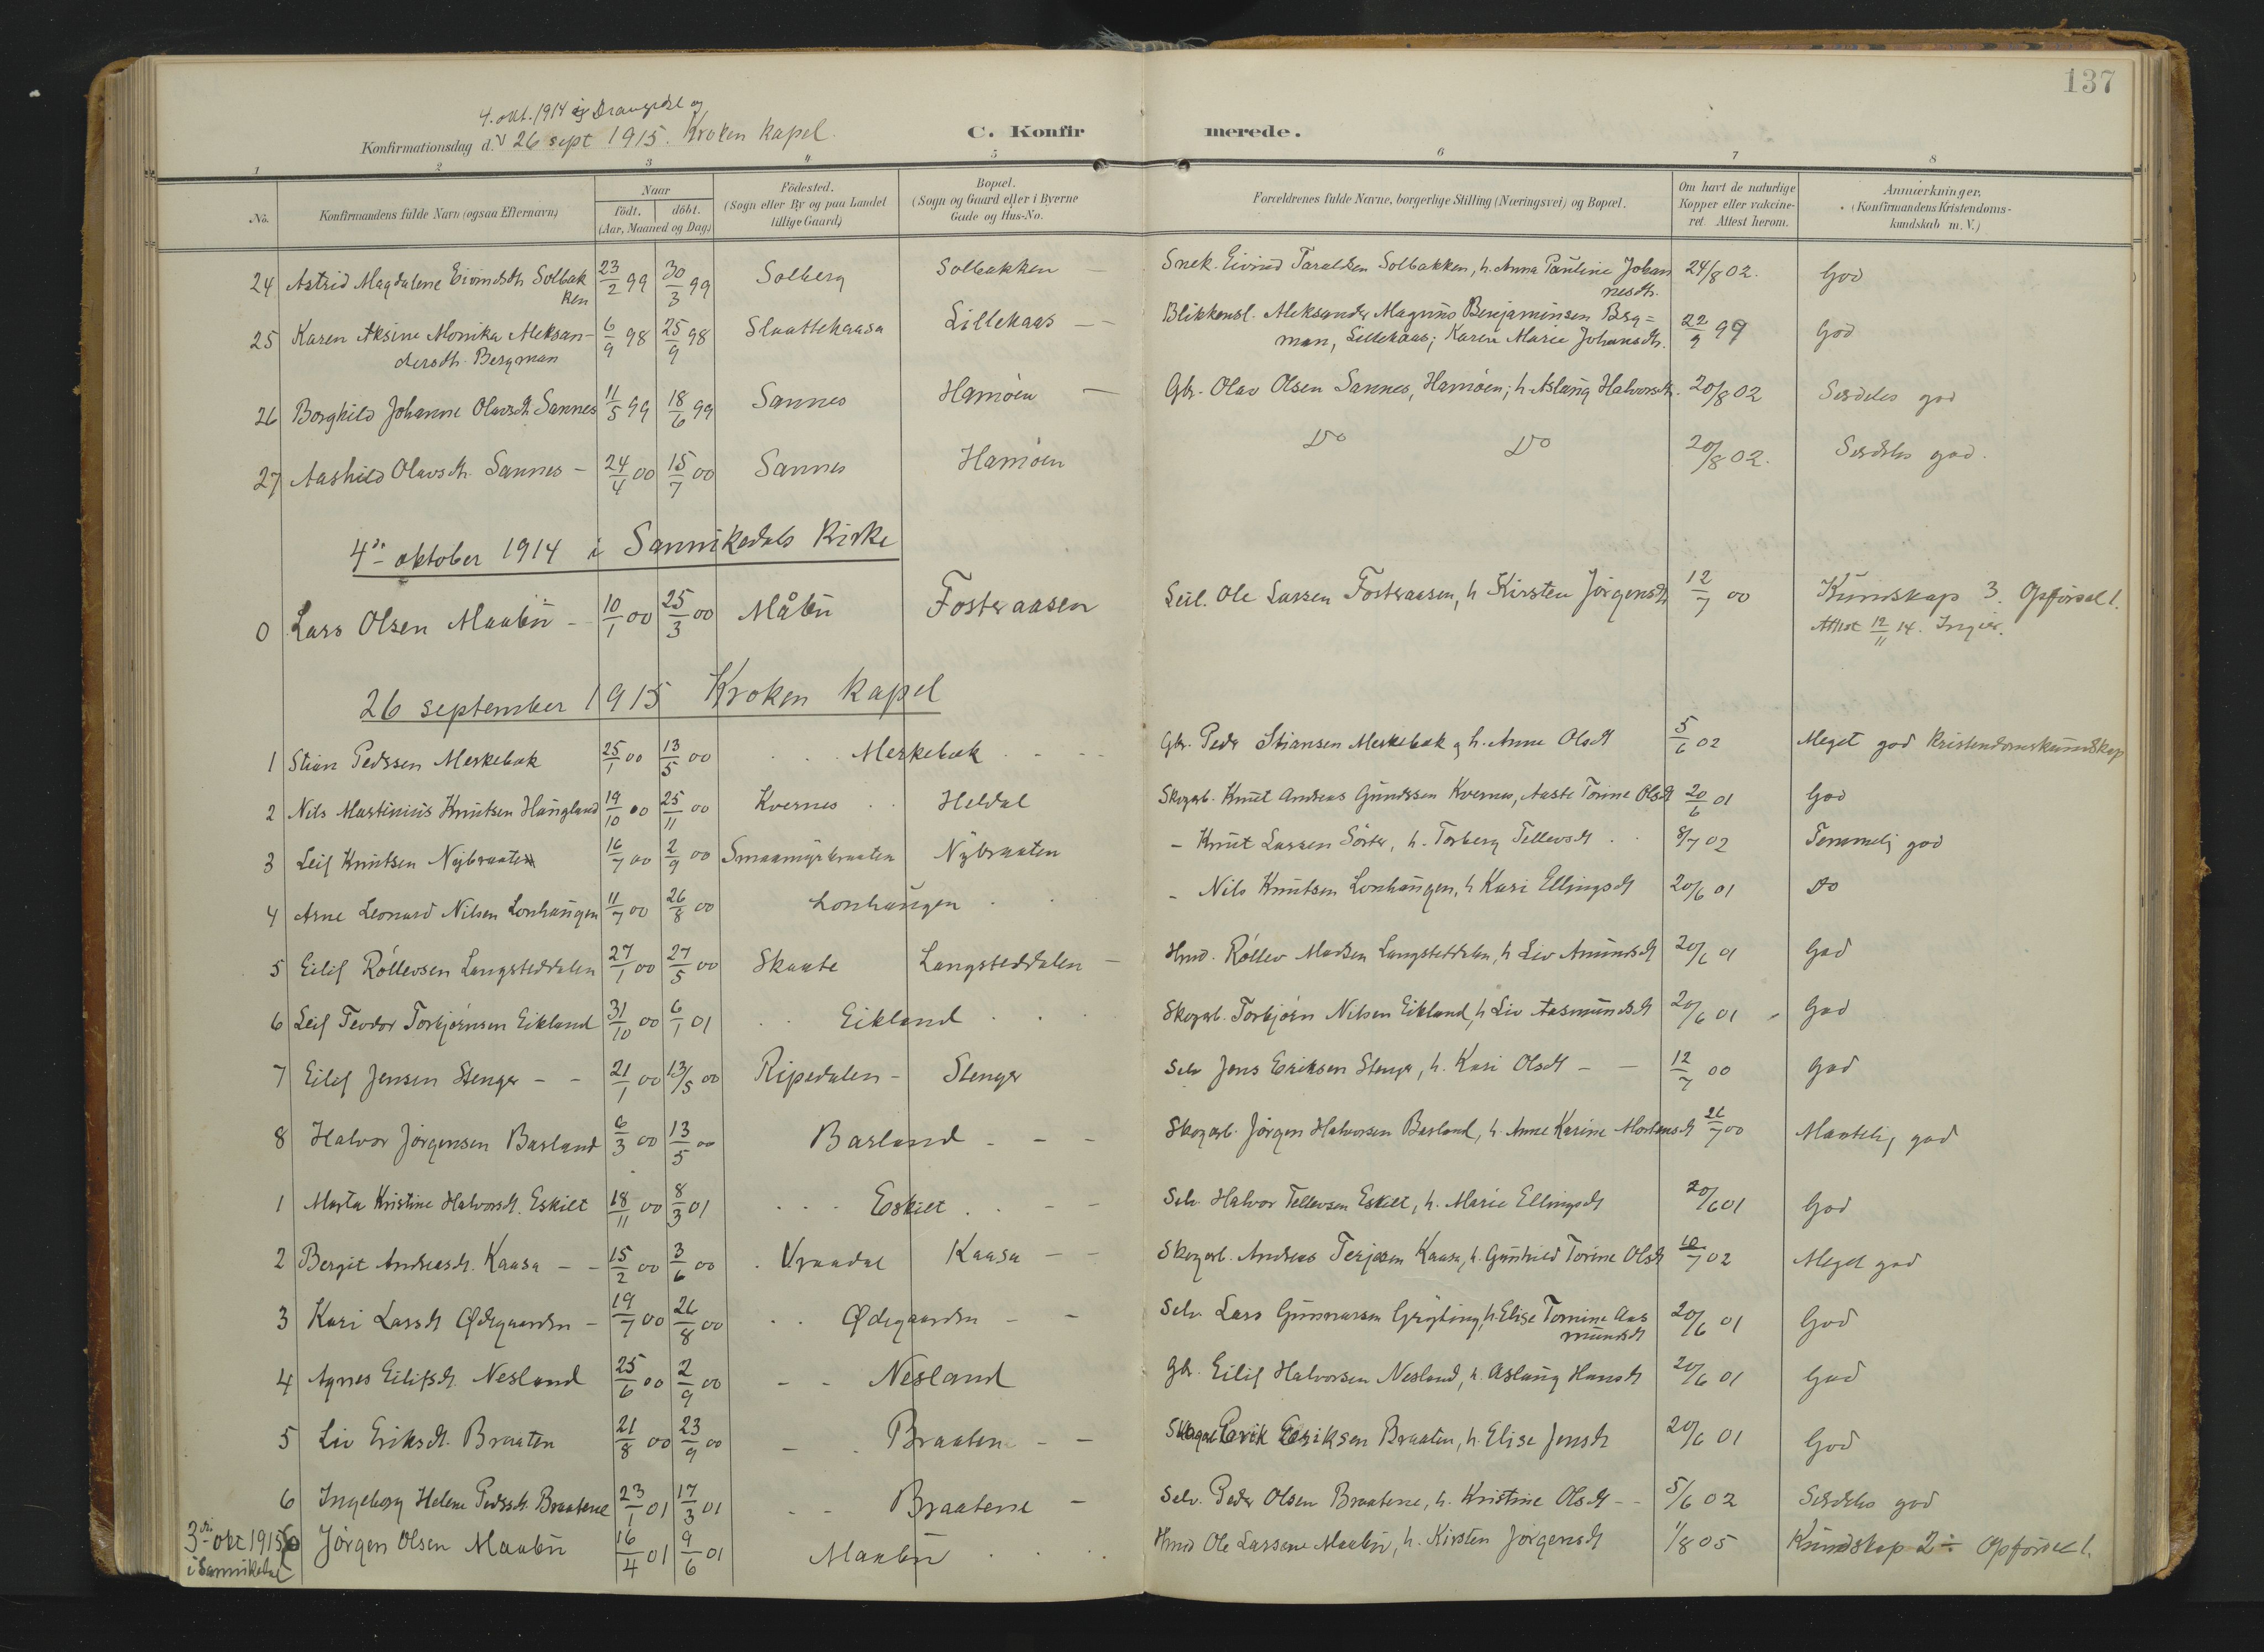 137
4. okt. 1914 i Drangedal og
Konfirmationsdag d. 26 sept 1915. Kroken kapel.
C. Konfirmerede.
1 2 3 4 5 6 7 8
No.
Konfirmandens fulde Navn (ogsaa Efternavn)
Naar
födt. döbt.
(Aar, Maaned og Dag)
Födested.
(Sogn eller By og paa Landet
tillige Gaard)
Bopæl.
(Sogn og Gaard eller i Byerne
Gade og Hus-No.
Forældrenes fulde Navne, borgerlige Stilling (Næringsvei) og Bopæl.
Om havt de naturlige
Kopper eller vakcine-
ret. Attest herom.
Anmærkninger.
(Konfirmandens Kristendoms-
kundskab m. V.)
24 Astrid Magdalene Eivindsdt. Solbakken 23/2 99 30/3 99 Solberg Solbakken — Snek. Eivind Taraldsen Solbakken, h. Anna Pauline Johannesdt. 24/8 02. God
25 Karen Aksine Monika Aleksan- 6/9 98 25/9 98 Slaattekaasa Lillekaas — Blikkensl. Aleksander Magnus Benjaminsen Berg= 22/9 99 God
dersdt. Bergman man, Lillekaas; Karen Marie Johansdt.
26 Borghild Johanne Olavsdt. Sannes 11/5 99 18/6 99 Sannes Hamöen — Gbr. Olav Olsen Sannes, Hamöen; h. Aslaug Halvorsdt. 20/8 02 Serdeles god
27 Aashild Olavsdt. Sannes – 24/4 00 15/7 00 Sannes Hamöen Do Do 20/8 02. Serdeles god.
4de oktober 1914 i Sannikedals Kirke
0 Lars Olsen Maabu – 10/1 00 25/3 00 Måbu Fosteraasen Leil. Ole Larsen Fosteraasen, h Kirsten Jörgensdt 12/7 00 Kundskap 3. Opförsel 1.
Attest 12/11 14. Ingier.
26 september 1915 Kroken kapel
1 Stian Pedersen Merkebæk 25/1 00 13/5 00 Merkebæk Gbr. Peder Stiansen Merkebæk og h. Anne Olsdt 5/6 02 Meget god kristendomskundskap
2 Nils Martinius Knutsen Haugland 19/10 00 25/11 00 Kvernes Heldal Skogarb. Knut Andreas Gundersen Kvernes, Aaste Torine Olsdt 20/6 01 God
3 Leif Knutsen Nybraaten 16/7 00 2/9 00 Smaamyrbraaten Nybraaten – Knut Larsen Sörter, h. Torberg Tellevsdt 8/7 02 Temmelig god
4 Arne Leonard Nilsen Lonhaugen 11/7 00 26/8 00 Lonhaugen – Nils Knutsen Lonhaugen, h Kari Ellingsdt 20/6 01 Do
5 Eilif Röllevsen Langsteddalen 27/1 00 27/5 00 Skaate Langsteddalen – Hmd. Röllev Madsen Langsteddalen, h Liv Amundsdt 20/6 01 God
6 Leif Teodor Torbjörnsen Eikland 31/10 00 6/1 01 Eikland Skogarb. Torbjörn Nilsen Eikland, h Liv Aasmundsdt 20/6 01 God
7 Eilef Jensen Stenger – – 21/1 00 13/5 00 Ripedalen – Stenger Selv Jens Eriksen Stenger, h. Kari Olsdt – — 12/7 00 God
8 Halvor Jörgensen Barland 6/3 00 13/5 00 Barland – – – Skogarb. Jörgen Halvorsen Barland, h. Anne Karine Mortensdt 26/7 00 Maatelig god
1 Marta Kristine Halvorsdt. Eskilt 18/11 00 8/3 01 Eskilt – – Selv. Halvor Tellevsen Eskilt, h. Marie Ellingsdt 20/6 01 God
2 Bergit Andreasdt. Kaasa – – 15/2 00 3/6 00 Vraadal Kaasa – – Skogarb. Andreas Terjesen Kaasa, h. Gunhild Torine Olsdt 10/7 02 Meget god
3 Kari Larsdt Ødegaarden – 19/7 00 26/8 00 Ødegaarden – – Selv. Lars Gunnarsen Gryting, h. Elise Tomine Aas 20/6 01 God
mundsdt
4 Agnes Eilifsdt. Nesland 25/6 00 2/9 00 – – Nesland Gbr. Eilif Halvorsen Nesland, h. Aslaug Hansdt 20/6 01 God
5 Liv Eriksdt. Braaten 21/8 00 23/9 00 – Braatene – – Erik Eriksen Braaten, h. Elise Jensdt 20/6 01 God
6 Ingeborg Helene Pedersdt. Braatene 23/1 01 17/3 01 – – Braatene – Selv. Peder Olsen Braatene, h. Kristine Olsdt – – 5/6 02 Serdeles god
3de okt 1915 0 Jörgen Olsen Maabu 16/4 01 9/6 01 Maabu Hmd Ole Larssene Maabu, h. Kirsten Jörgensdt 1/8 05 Kundskap 2÷ Opförsel 1.
i Sannikedal